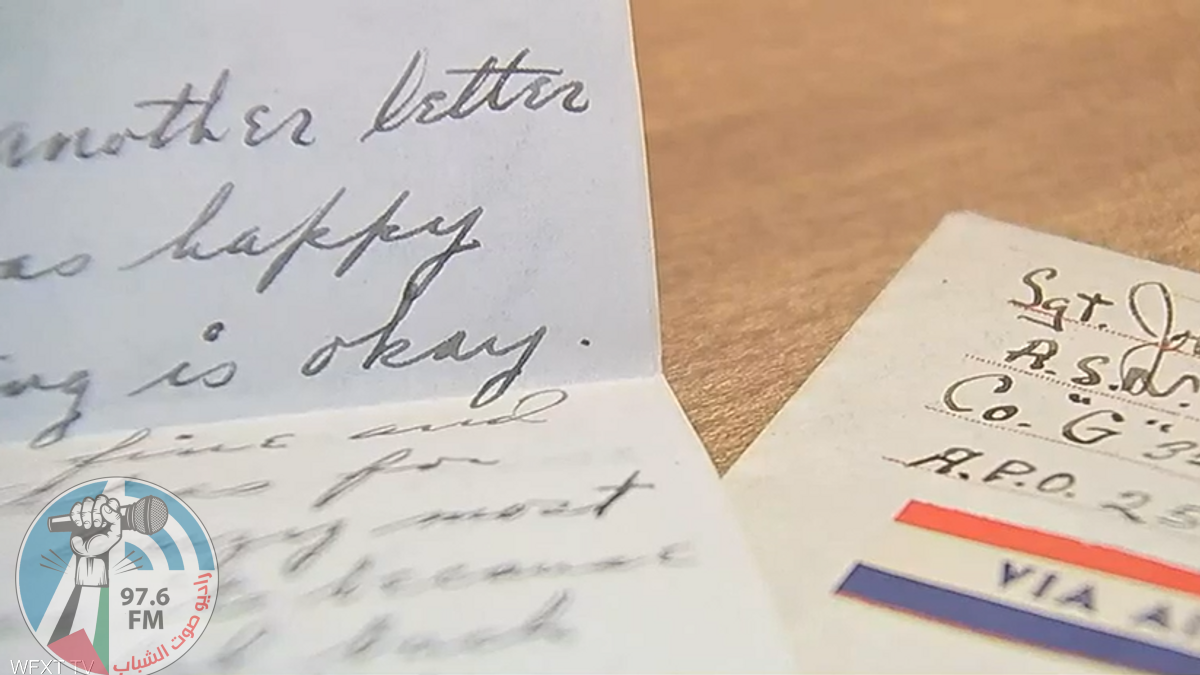 another letter
as happy
ing is okay.
fine and
for
most
because
back
Sgt. Jo
A.S.N.
Co. "G" 3
A.P.O. 25
VIA A
97.6
FM
راديو صوت الشباب
WFXT TV